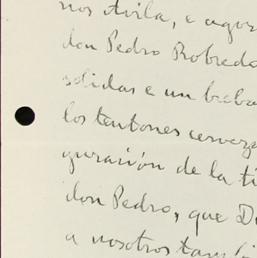 nos Avila, e agora
don Pedro Robredo
sólidas e un beba
los tentones cerveza
guración de la ti
don Pedro, que D
a nosotros tam